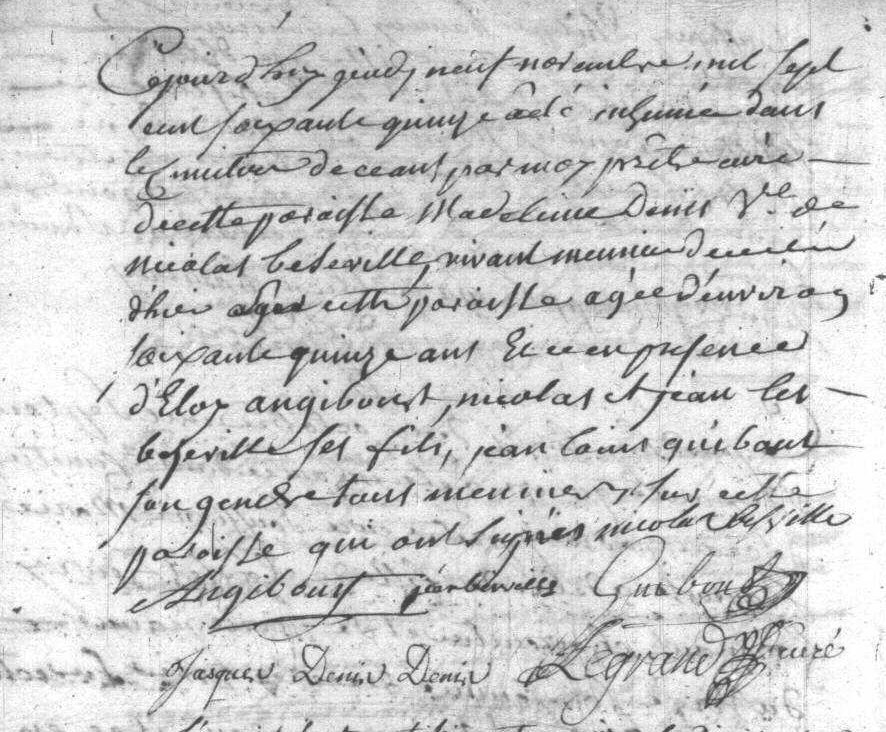 Cejourd'huy jeudj neuf novembre mil sept
cent soixante quinze a été inhumée dans
le Cimitiere de ceans par moy prêtre curé
de cette paroisse Madeleine Denis Ve de
nicolas beseville, vivant meunier decedée
d'hier cette paroisse agée d'environ
soixante quinze ans Et ce en presence
d'Eloy angiboust, nicolas et jean les
beseville ses fils, jean louis guibout
son gendre tous meuniers sur cette
paroisse qui ont signés nicolas beseville
Angiboust jean Guibout
Jasques Denis Denis Legrand curé